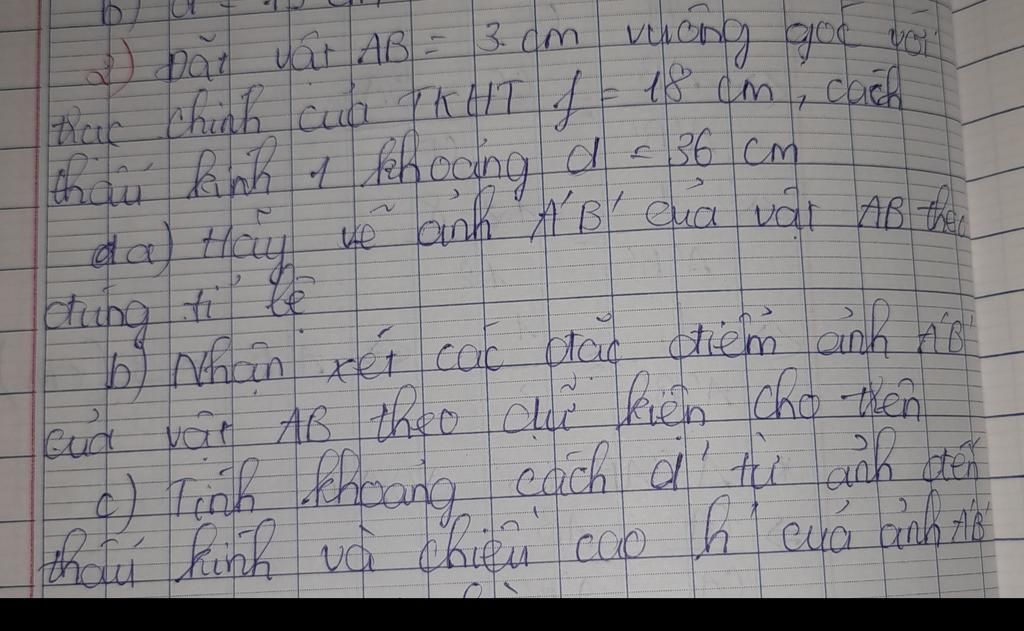 b) d =
2) Đặt vật AB = 3 cm vuông góc với
trục chính của TKHT f = 18 cm, cách
thấu kính 1 khoảng d = 36 cm
a) Hãy vẽ ảnh A'B' của vật AB theo
đúng tỉ lệ
b) Nhận xét các đặc điểm ảnh A'B'
của vật AB theo dữ kiện cho trên
c) Tính khoảng cách d' từ ảnh đến
thấu kính và chiều cao h' của ảnh A'B'